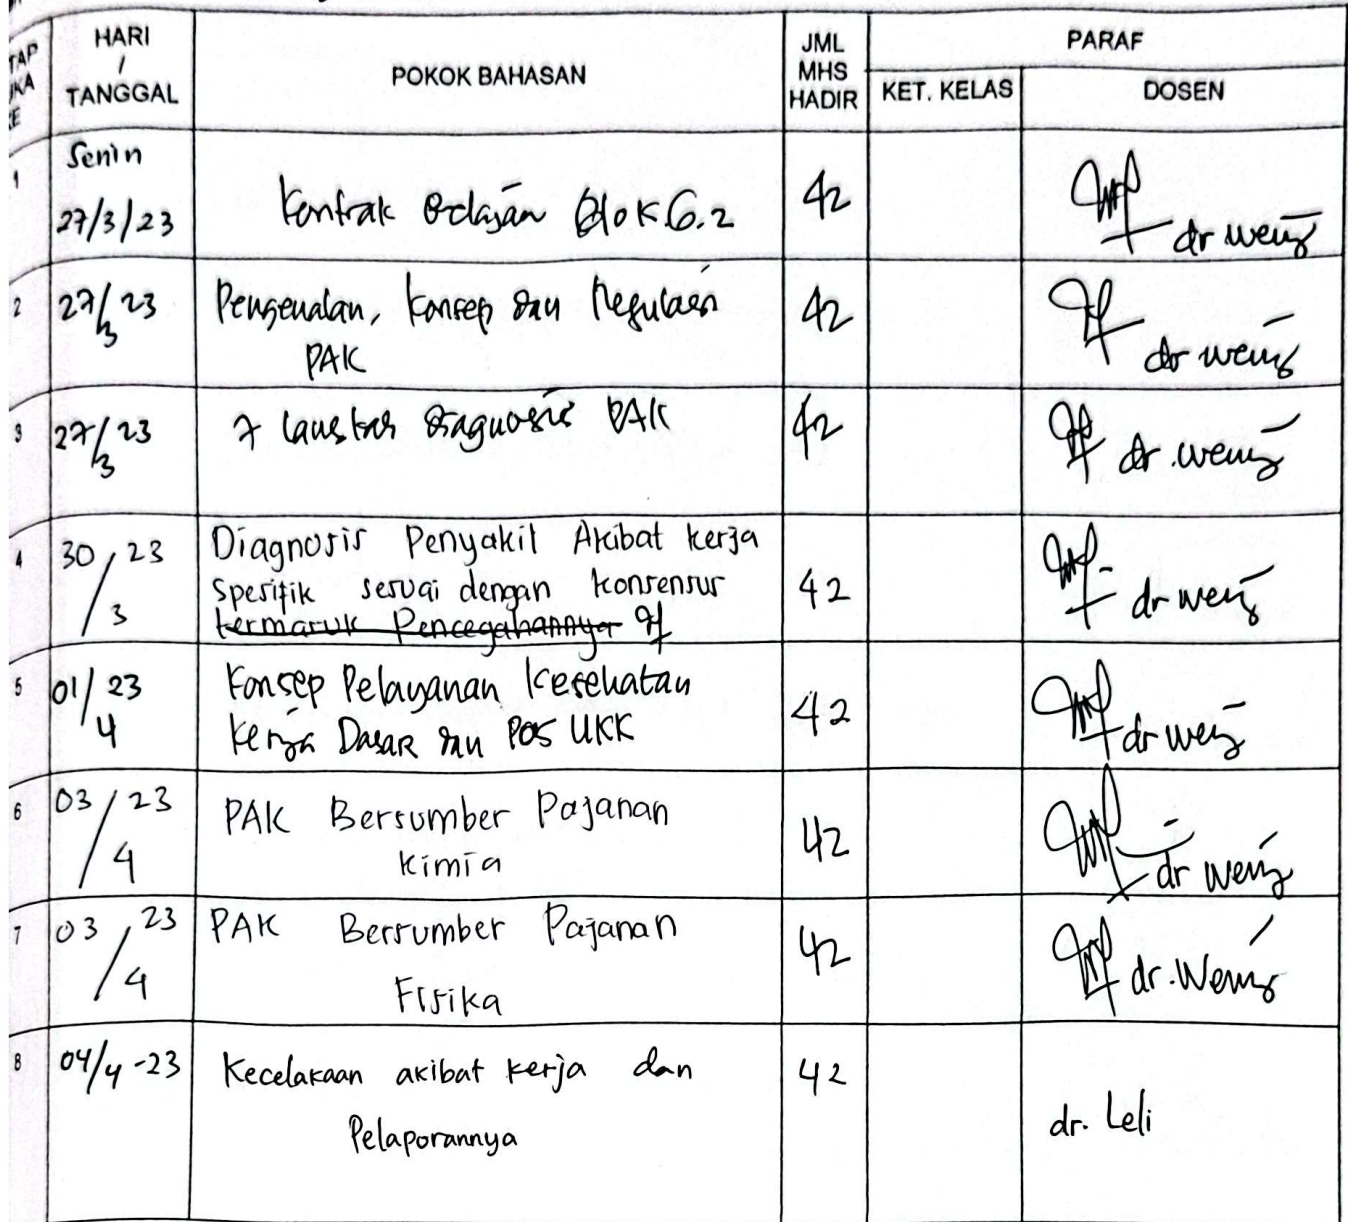 TAP
HARI
JML
PARAF
UKA
/
POKOK BAHASAN
MHS
KE
TANGGAL
HADIR
KET. KELAS
DOSEN
1
Senin
27/3/23
Kontrak Belajar Blok 6.2
42
dr weny
2
27/3 23
Pengenalan, Konsep dan Regulasi
PAK
42
dr weny
3
27/3 23
7 langkah Diagnosis PAK
42
dr. weny
4
30/3 23
Diagnosis Penyakit Akibat kerja
spesifik sesuai dengan konsensus
termasuk Pencegahannya
42
dr weny
5
01/4 23
Konsep Pelayanan Kesehatan
Kerja Dasar dan POS UKK
42
dr weny
6
03/4 23
PAK Bersumber Pajanan
Kimia
42
dr weny
7
03/4 23
PAK Bersumber Pajanan
Fisika
42
dr. Weny
8
04/4-23
Kecelakaan akibat kerja dan
Pelaporannya
42
dr. Leli